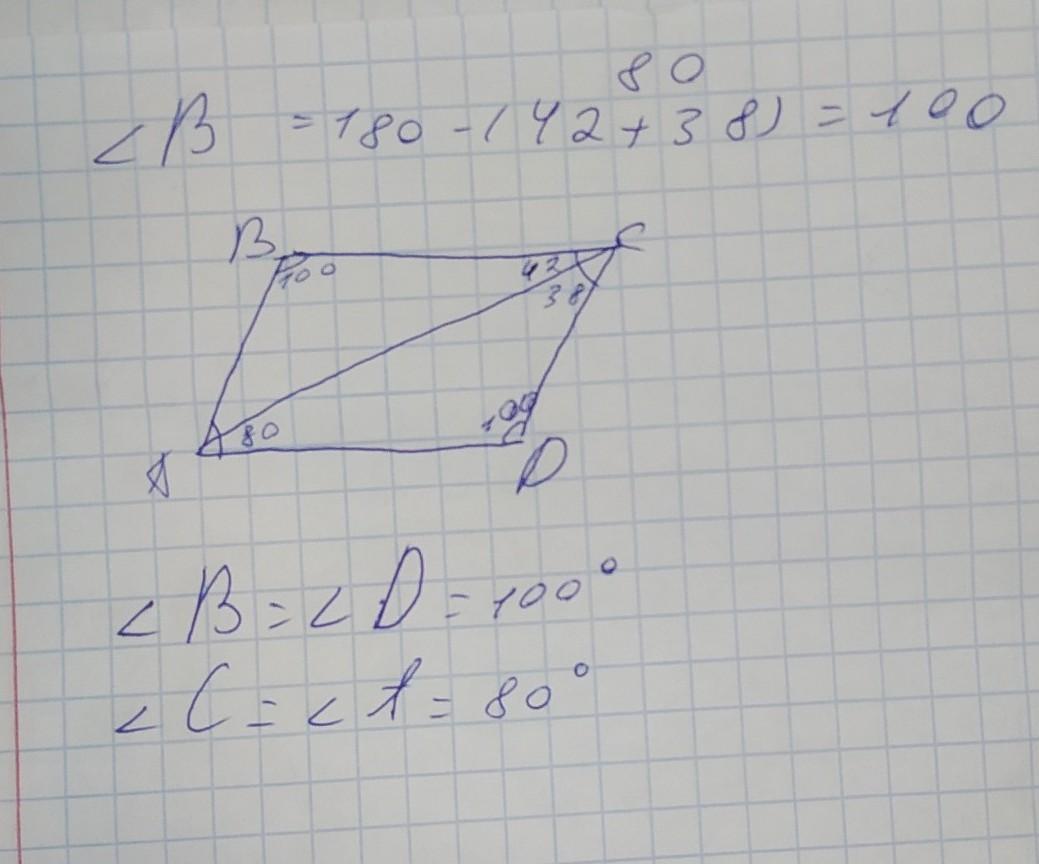 80
∠B = 180 - (42 + 38) = 100
B C
100 42
38
80 100
A D
∠B = ∠D = 100°
∠C = ∠A = 80°